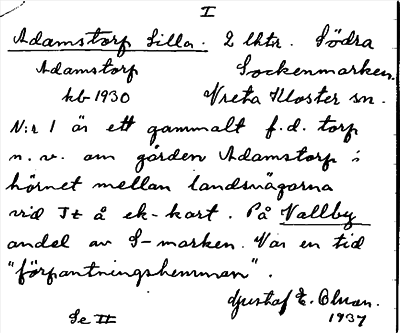 I
Adamstorp Lilla. 2 lhtr. Södra
Adamstorp Sockenmarken.
kb 1930 Vreta Kloster sn.
N:r 1 är ett gammalt f.d. torp
n.v. om gården Adamstorp i
hörnet mellan landsvägarna
vid Tt å ek-kart. På Vallby
andel av S-marken. Var en tid
"förpantningshemman".
Gustaf E. Olsson.
Se II 1937